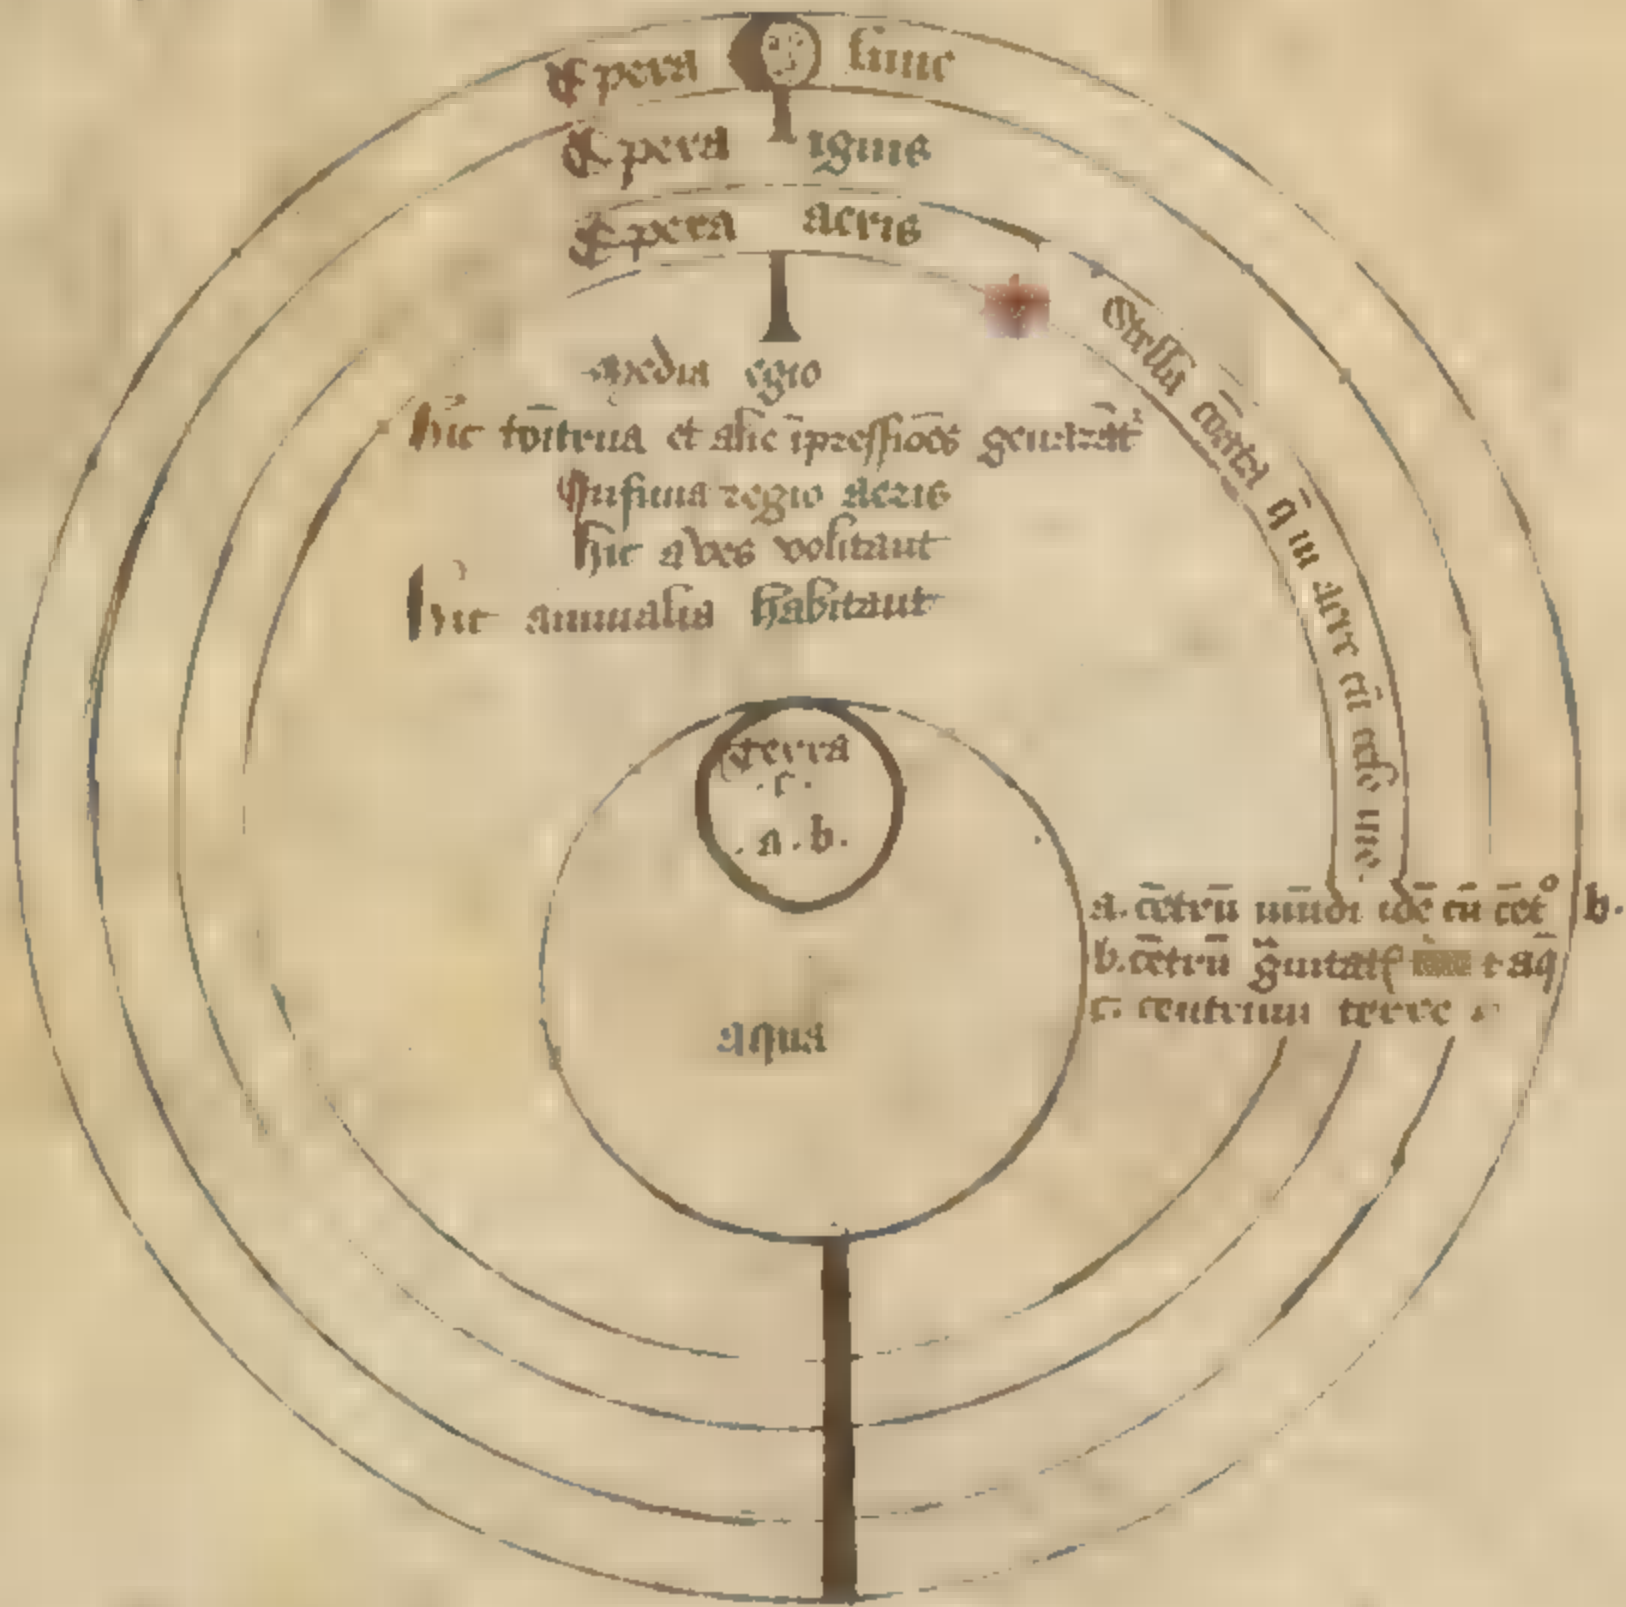 Spera lune
Spera ignis
Spera aeris
media regio
hic to̅itrua et alie i̅pressio̅es gena̅t᷑
Infima regio aeris
hic aves volitant
hic animalia habitant
Stella co̅ata q̅ in aere cu̅
terra
.c.
.a.b.
a. ce̅tru̅ mu̅di ide̅ cu̅ ce̅t° b.
b. ce̅tru̅ g̅uitat t aq̅
c. centrum terre
aqua